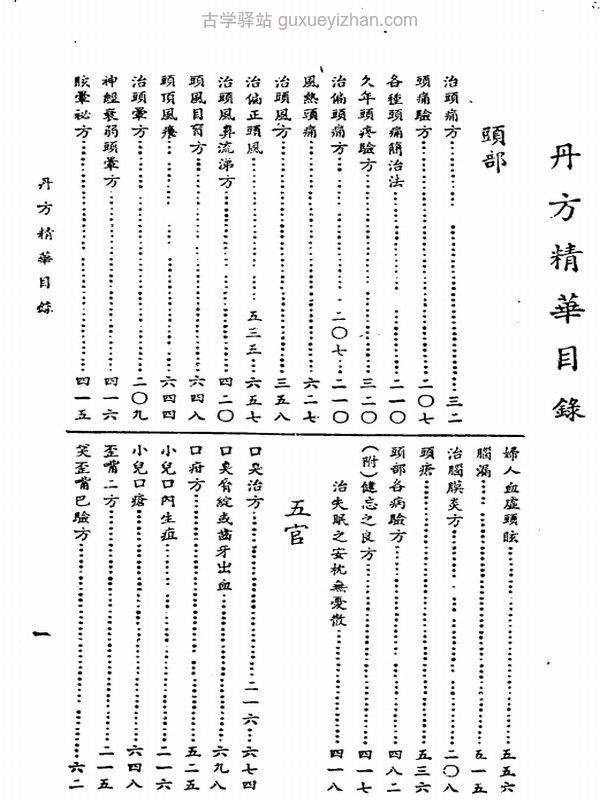 古学驿站 guxueyizhan.com
丹方精華目錄
頭部
治頭痛方……三二
頭痛驗方……二〇七
各種頭痛簡治法……二一〇
久年頭疼驗方……三二〇
治偏頭痛方……二〇七……二一〇
風熱頭痛……六二七
治頭風方……三五八
治偏正頭風……五三五……六五七
治頭風鼻流涕方……四二〇
頭風目盲方……六四八
頭頂風癢……六四四
治頭暈方……二〇九
神經衰弱頭暈方……四一六
眩暈祕方……四一五
婦人血虛頭眩……五五六
腦漏……五一五
治腦膜炎方……二〇八
頭瘡……五三六
頭部各病驗方……四八二
(附)健忘之良方……四一七
治失眠之安枕無憂散……四一八
五官
口臭治方……二一六……六七四
口臭脣綻或齒牙出血……六九八
口疳方……五二五
小兒口內生疽……二一六
小兒口瘡……六四八
歪嘴二方……二一五
笑歪嘴巴驗方……六二
丹方精華目錄
一